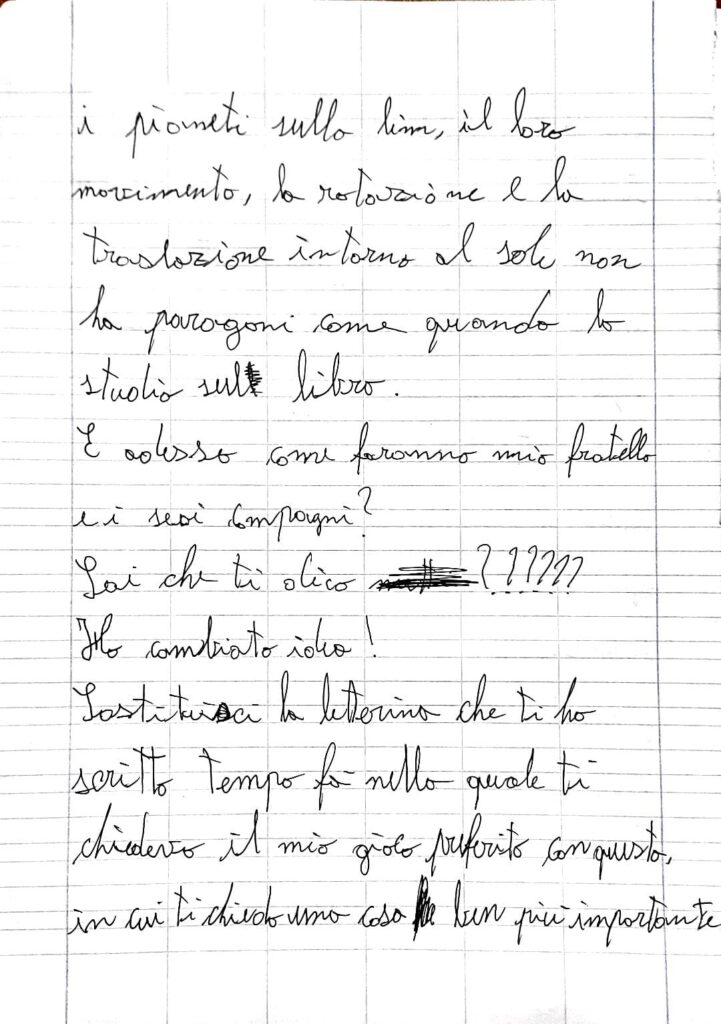 i pianeti sulla lim, il loro
movimento, la rotazione e la
traslazione intorno al sole non
ha paragoni come quando lo
studio sul libro.
E adesso come faranno mio fratello
e i suoi compagni?
Sai che ti dico ??????
Ho cambiato idea!
Sostituisci la letterina che ti ho
scritto tempo fa nella quale ti
chiedevo il mio gioco preferito con questa,
in cui ti chiedo una cosa ben più importante